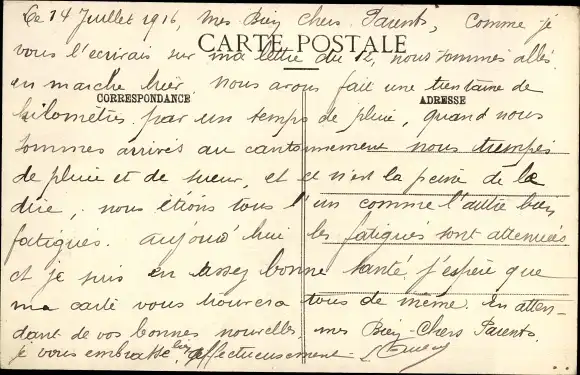 Ce 14 Juillet 1916, Mes Bien Chers Parents, Comme je
vous l'écrivais sur ma lettre du 12, nous sommes allés
CARTE POSTALE
en marche hier. Nous avons fait une trentaine de
CORRESPONDANCE
ADRESSE
kilomètres par un temps de pluie, quand nous
sommes arrivés au cantonnement nous trempés
de pluie et de sueur, et ce n'est la peine de le
dire, nous étions tous l'un comme l'autre bien
fatigués. aujourd'hui les fatigues sont attenuées
et je suis en assez bonne santé. j'espère que
ma carte vous trouvera tous de même. En atten-
dant de vos bonnes nouvelles, mes Bien-Chers Parents,
je vous embrasse bien affectueusement